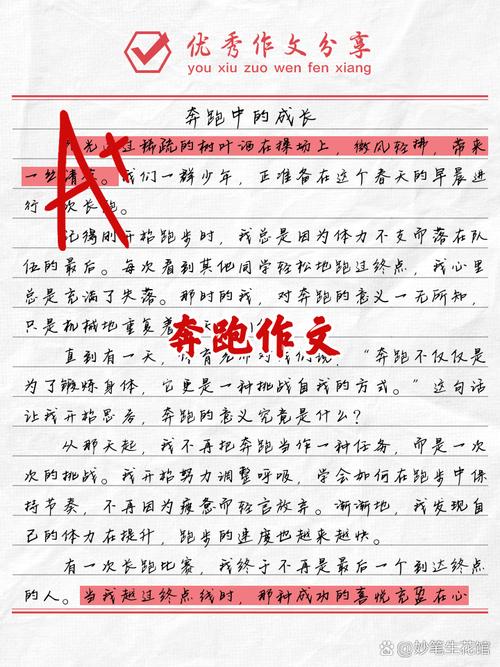 优秀作文分享
you xiu zuo wen fen xiang
奔跑中的成长
A+
稀疏的树叶洒在操场上，微风轻拂，带来
一丝清凉。我们一群少年，正准备在这个春天的早晨进
行一次长跑。
记得刚开始跑步时，我总是因为体力不支而落在队
伍的最后。每次看到其他同学轻松地跑过终点，我心里
总是充满了失落。那时的我，对奔跑的意义一无所知，
只是机械地重复着
奔跑作文
直到有一天，体育老师对我们说，“奔跑不仅仅是
为了锻炼身体，它更是一种挑战自我的方式。”这句话
让我开始思考，奔跑的意义究竟是什么？
从那天起，我不再把奔跑当作一种任务，而是一次
次的挑战。我开始努力调整呼吸，学会如何在跑步中保
持节奏，不再因为疲惫而轻言放弃。渐渐地，我发现自
己的体力在提升，跑步的速度也越来越快。
有一次长跑比赛，我终于不再是最后一个到达终点
的人。当我越过终点线时，那种成功的喜悦充盈在心
@妙笔生花馆